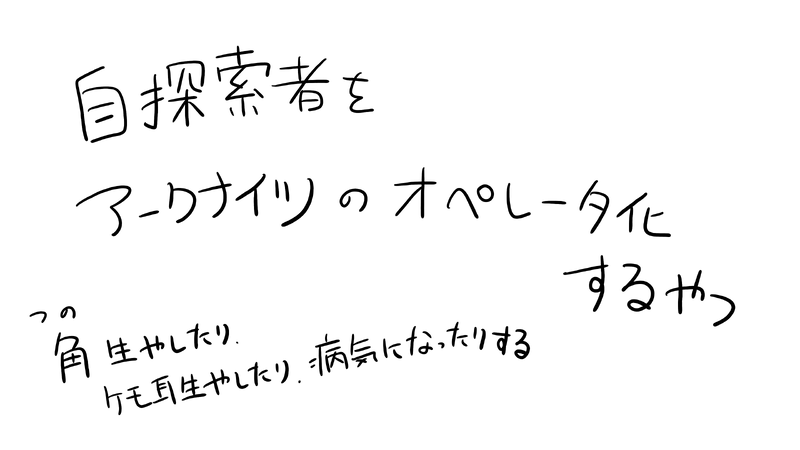 自探索者を
アークナイツのオペレータ化
するやつ
つの
角生やしたり.
ケモ耳生やしたり.病気になったりする